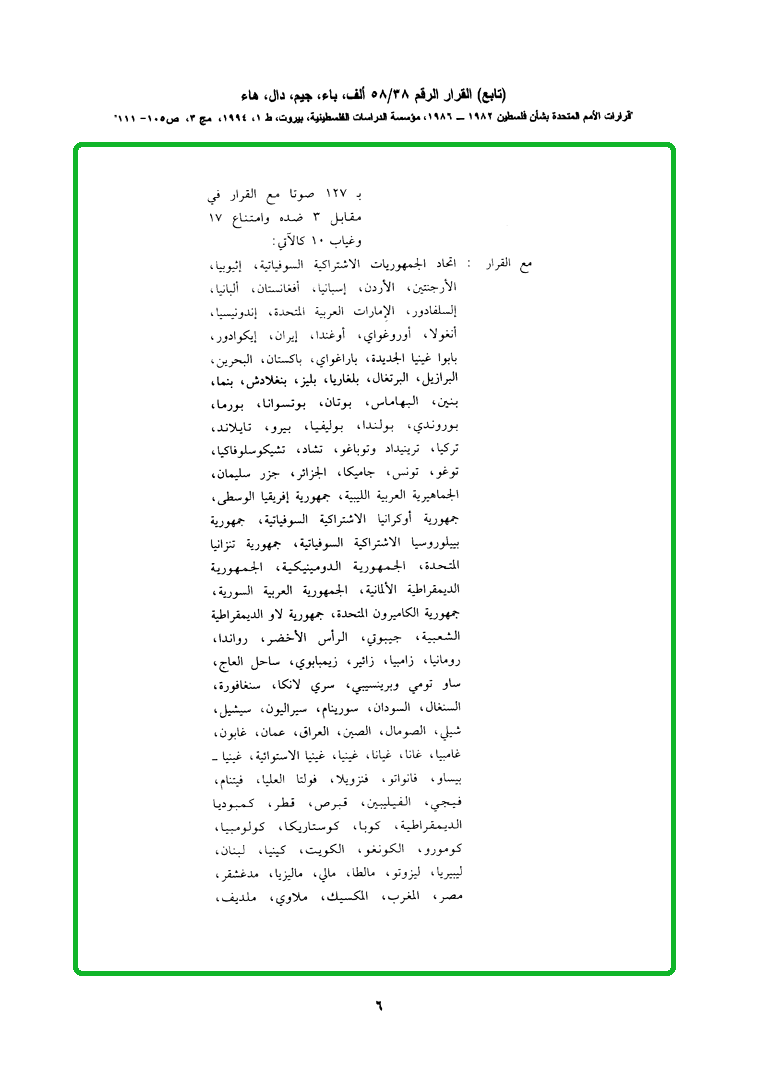 (تابع) القرار الرقم ٥٨/٣٨ ألف، باء، جيم، دال، هاء
"قرارات الأمم المتحدة بشأن فلسطين ١٩٨٢ – ١٩٨٦، مؤسسة الدراسات الفلسطينية، بيروت، ط ١، ١٩٩٤، مج ٣، ص١٠٥- ١١١"
بـ ١٢٧ صوتا مع القرار في
مقابل ٣ ضده وامتناع ١٧
وغياب ١٠ كالآتي:
مع القرار : اتحاد الجمهوريات الاشتراكية السوفياتية، إثيوبيا،
الأرجنتين، الأردن، إسبانيا، أفغانستان، ألبانيا،
إلسلفادور، الإمارات العربية المتحدة، إندونيسيا،
أنغولا، أوروغواي، أوغندا، إيران، إيكوادور،
بابوا غينيا الجديدة، باراغواي، باكستان، البحرين،
البرازيل، البرتغال، بلغاريا، بليز، بنغلادش، بنما،
بنين، البهاماس، بوتان، بوتسوانا، بورما،
بوروندي، بولندا، بوليفيا، بيرو، تايلاند،
تركيا، ترينيداد وتوباغو، تشاد، تشيكوسلوفاكيا،
توغو، تونس، جاميكا، الجزائر، جزر سليمان،
الجماهيرية العربية الليبية، جمهورية إفريقيا الوسطى،
جمهورية أوكرانيا الاشتراكية السوفياتية، جمهورية
بييلوروسيا الاشتراكية السوفياتية، جمهورية تنزانيا
المتحدة، الجمهورية الدومينيكية، الجمهورية
الديمقراطية الألمانية، الجمهورية العربية السورية،
جمهورية الكاميرون المتحدة، جمهورية لاو الديمقراطية
الشعبية، جيبوتي، الرأس الأخضر، رواندا،
رومانيا، زامبيا، زائير، زيمبابوي، ساحل العاج،
ساو تومي وبرينسيبي، سري لانكا، سنغافورة،
السنغال، السودان، سورينام، سيراليون، سيشيل،
شيلي، الصومال، الصين، العراق، عمان، غابون،
غامبيا، غانا، غيانا، غينيا، غينيا الاستوائية، غينيا ـ
بيساو، فانواتو، فنزويلا، فولتا العليا، فيتنام،
فيجي، الفيليبين، قبرص، قطر، كمبوديا
الديمقراطية، كوبا، كوستاريكا، كولومبيا،
كومورو، الكونغو، الكويت، كينيا، لبنان،
ليبيريا، ليزوتو، مالطا، مالي، ماليزيا، مدغشقر،
مصر، المغرب، المكسيك، ملاوي، ملديف،
٦